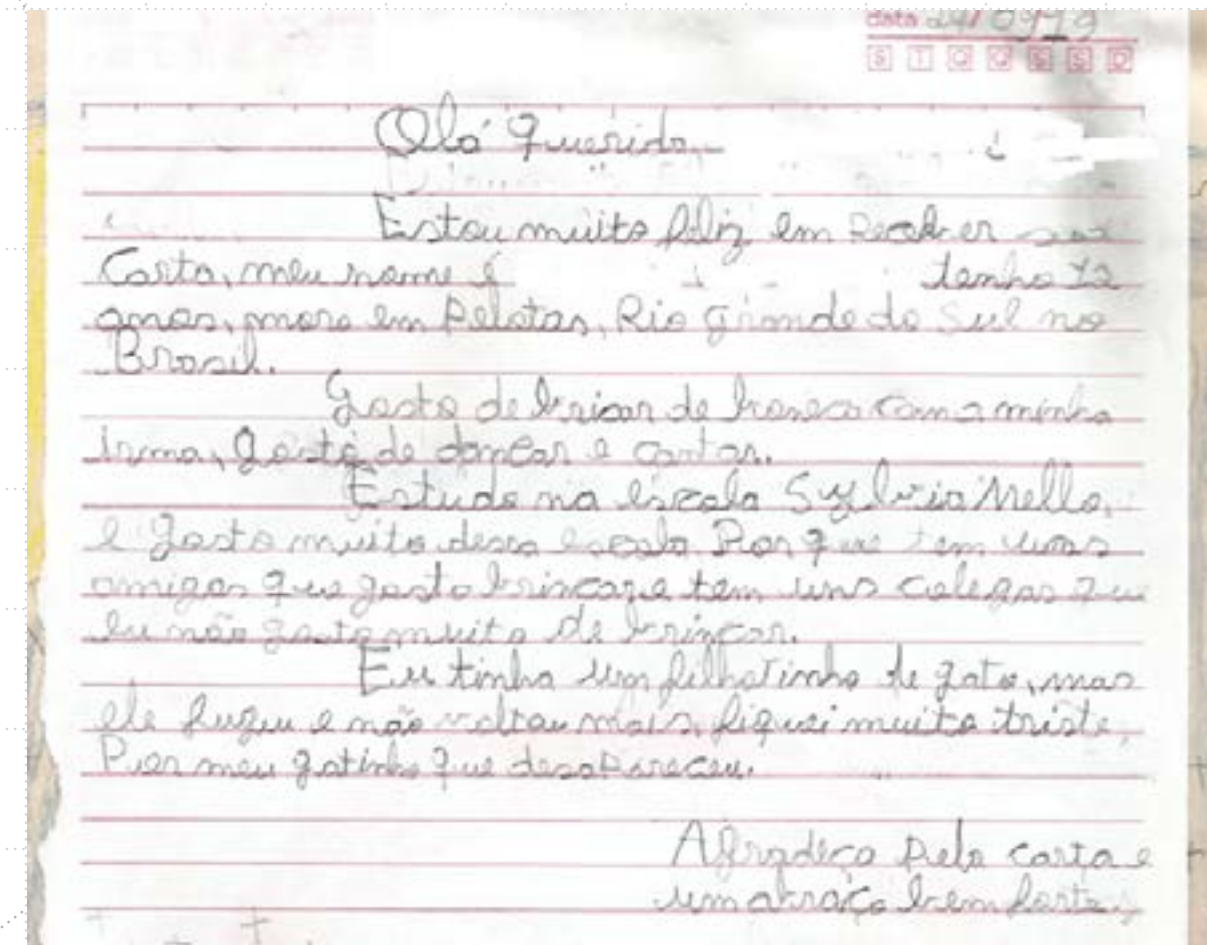 data 24/09/19
S T Q Q S S D
Olá Querido,
Estou muito feliz em Receber sua
Carta, meu nome é tenho 12
anos, moro em Pelotas, Rio Grande do Sul no
Brasil.
Gosto de brinar de boneca com a minha
irma, Gosto de dançar e cantar.
Estudo na escola Sylvia Mello,
e gosto muito dessa escola Por que tem umas
amigas que gosto brincar, e tem uns colegas que
eu não gosto muito de brincar.
Eu tinha um filhotinho de gato, mas
ele fugiu e não voltou mais, fiquei muito triste,
Por meu gatinho que desapareceu.
Agradeço pela carta e
um abraço bem forte,